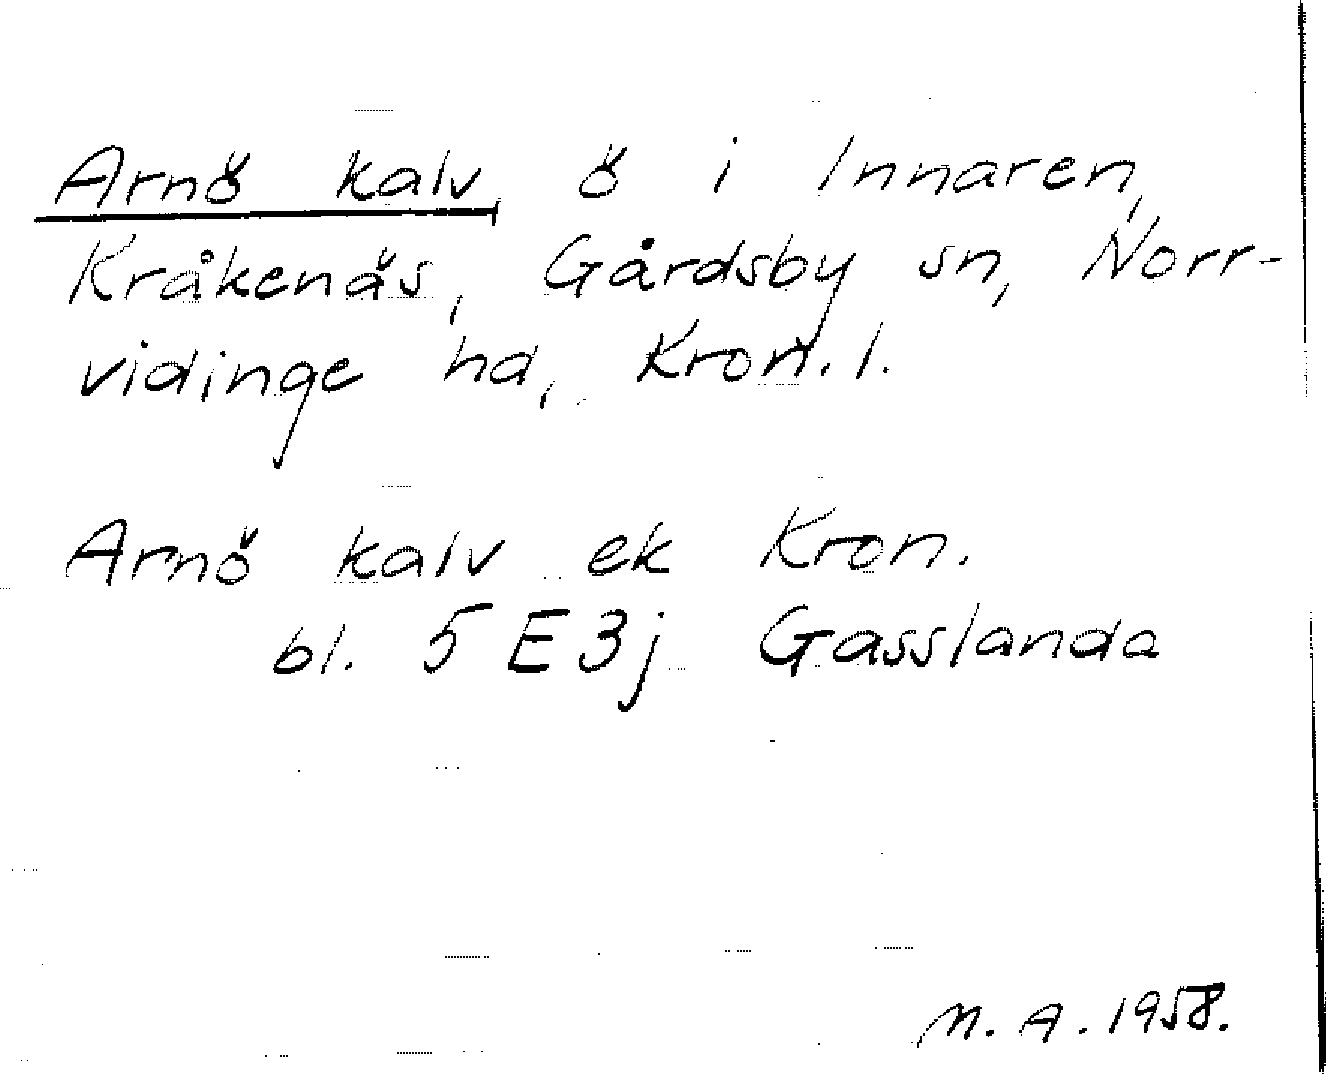 Arnö kalv, ö i Innaren,
Kråkenäs, Gårdsby sn, Norr-
vidinge hd, Kron. l.
Arnö kalv ek Kron.
bl. 5 E 3j Gasslanda
M. A. 1958.